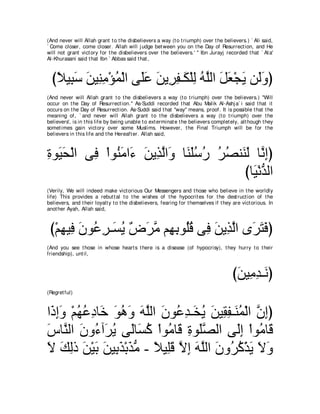 (And never will Allah grant to the disbelievers a way (to triumph) over the believers.) `Ali said,
`Come closer, come closer. Allah will judge between you on the Day of Resurrection, and He
will not grant victory for the disbelievers over the believers.' '' Ibn Jurayj recorded that `Ata'
Al-Khurasani said that Ibn `Abbas said that,
(وَلَن يَجْعَلَ اللَّهُ لِلْكَـفِرِينَ عَلَى الْمُؤْمِنِينَ سَبِيلاً)
(And never will Allah grant to the disbelievers a way (to triumph) over the believers.) "Will
occur on the Day of Resurrection.'' As-Suddi recorded that Abu Malik Al-Ashja`i said that it
occurs on the Day of Resurrection. As-Suddi said that "way'' means, proof. It is possible that the
meaning of, `and never will Allah grant to the disbelievers a way (to triumph) over the
believers', is in this life by being unable to exterminate the believers completely, although they
sometimes gain victory over some Muslims. However, the Final Triumph will be for the
believers in this life and the Hereafter. Allah said,
(إِنَّا لَنَنصُرُ رُسُلَنَا وَالَّذِينَ ءَامَنُواْ فِى الْحَيَوةِ
الدُّنْيَا)
(Verily, We will indeed make victorious Our Messengers and those who believe in the worldly
life) This provides a rebuttal to the wishes of the hypocrites for the destruction of the
believers, and their loyalty to the disbelievers, fearing for themselves if they are victorious. In
another Ayah, Allah said,
(فَتَرَى الَّذِينَ فِى قُلُوبِهِم مَّرَضٌ يُسَـرِعُونَ فِيهِمْ)
(And you see those in whose hearts there is a disease (of hypocrisy), they hurry to their
friendship), until,
(نَـدِمِينَ)
(Regretful)
(إِنَّ الْمُنَـفِقِينَ يُخَـدِعُونَ اللَّهَ وَهُوَ خَادِعُهُمْ وَإِذَا
قَامُواْ إِلَى الصَّلَوةِ قَامُواْ كُسَالَى يُرَآءُونَ النَّاسَ
وَلاَ يَذْكُرُونَ اللَّهَ إِلاَّ قَلِيلاً - مُّذَبْذَبِينَ بَيْنَ ذلِكَ لاَ